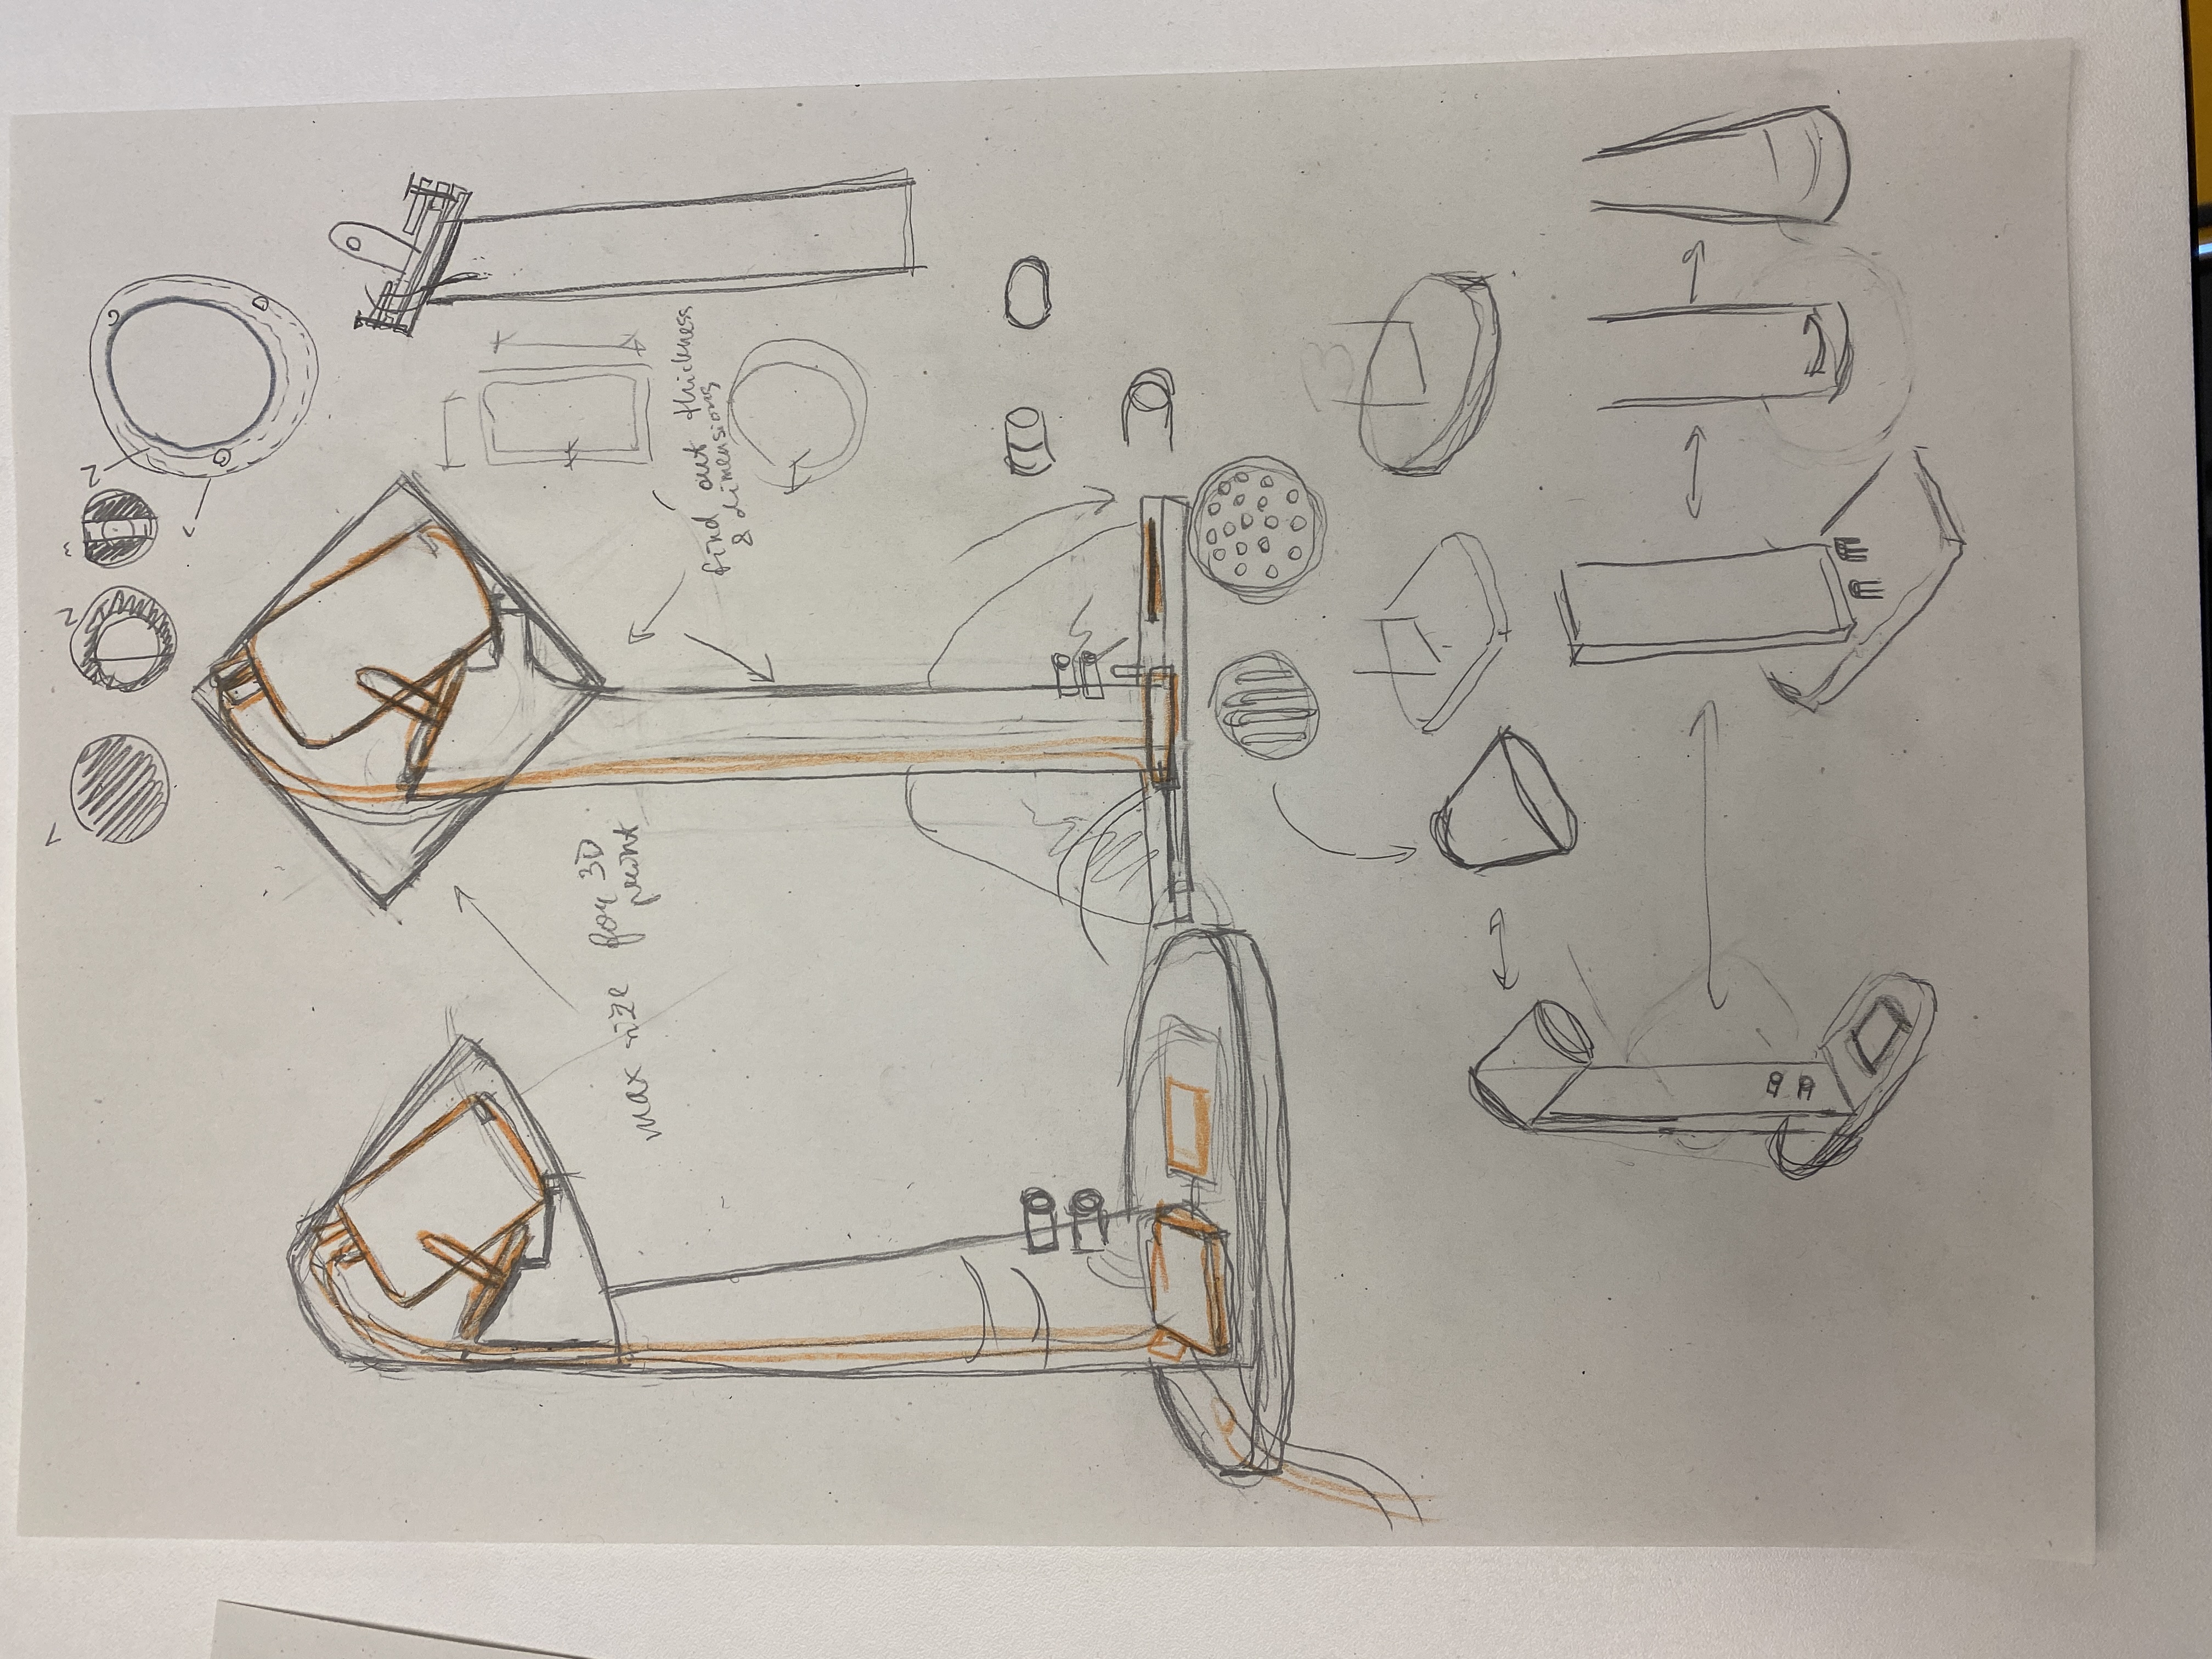 1
2
3
2
max size for 3D
print
find out thickness
& dimensions